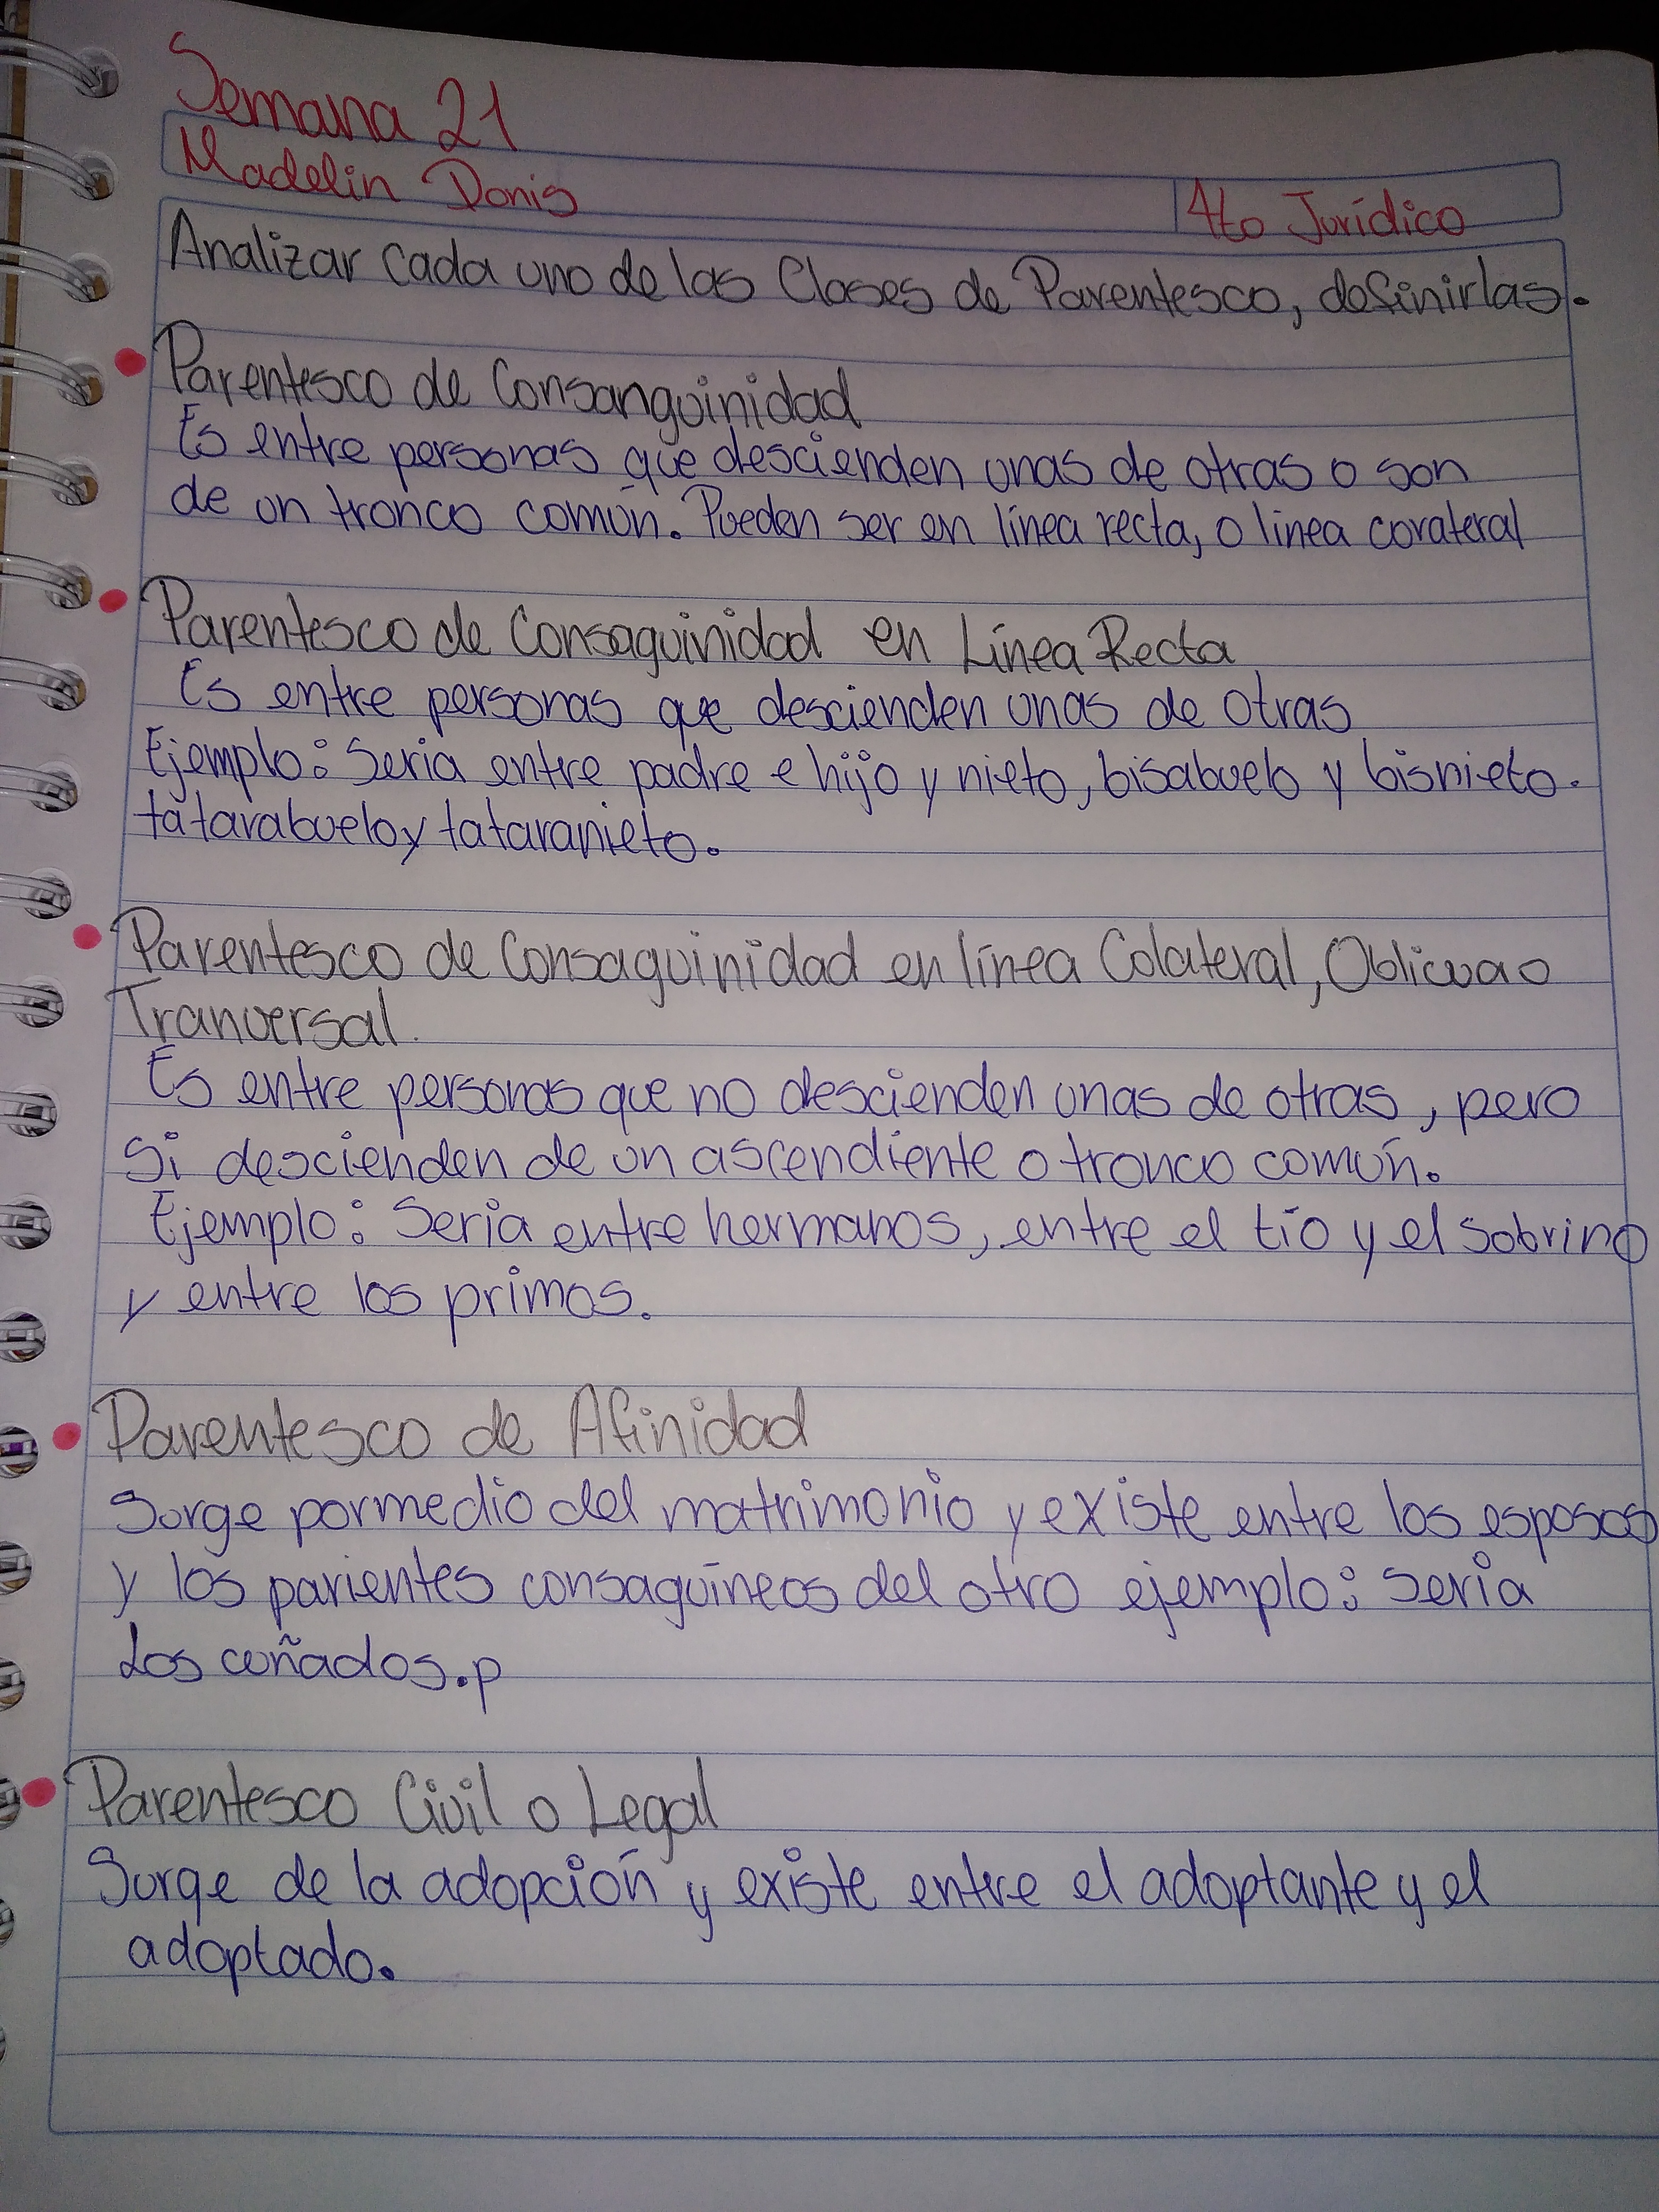 Semana 21
Madelin Donis
4to Jurídico
Analizar cada uno de las Clases de Parentesco, definirlas.
Parentesco de Consanguinidad
Es entre personas que descienden unas de otras o son
de un tronco común. Pueden ser en línea recta, o linea corateral
Parentesco de Consaguinidad en Línea Recta
Es entre personas que descienden unas de otras
Ejemplo: Seria entre padre e hijo y nieto, bisabuelo y bisnieto.
tatarabuelo y tataranieto.
Parentesco de Consaguinidad en línea Colateral, Oblicua o
Tranversal.
Es entre personas que no descienden unas de otras, pero
Si descienden de un ascendiente o tronco común.
Ejemplo: Seria entre hermanos, entre el tío y el Sobrino
y entre los primos.
Parentesco de Afinidad
Surge por medio del matrimonio y existe entre los esposos
y los parientes consaguíneos del otro ejemplo: Seria
Los cuñados.p
Parentesco Civil o Legal
Surge de la adopción y existe entre el adoptante y el
adoptado.